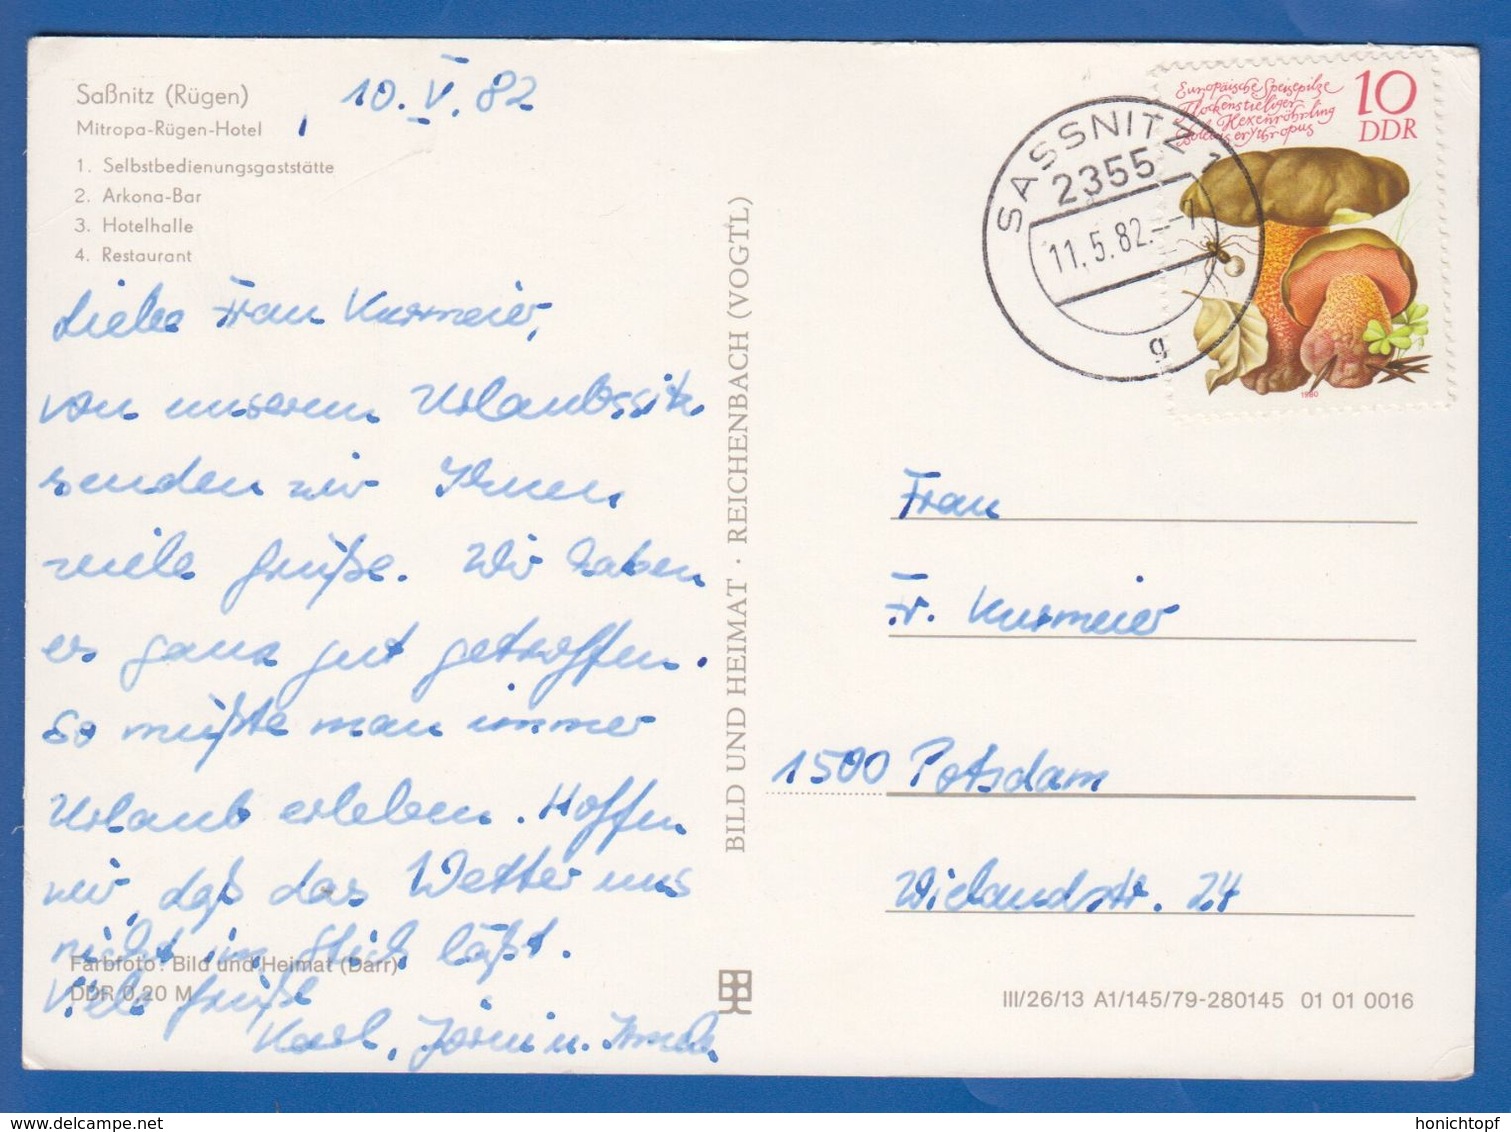 Saßnitz (Rügen)
Mitropa-Rügen-Hotel
1. Selbstbedienungsgaststätte
2. Arkona-Bar
3. Hotelhalle
4. Restaurant
10. V. 82
Liebe Frau Kurmeier,
von unserem Urlaubssitz
senden wir Ihnen
viele Grüße. Wir haben
es ganz gut getroffen.
So müßte man immer
Urlaub erleben. Hoffen
wir, daß das Wetter uns
nicht im Stich läßt.
Viele Grüße
Karl, u.
Farbfoto: Bild und Heimat (Darr)
DDR 0,20 M
BILD UND HEIMAT · REICHENBACH (VOGTL)
Europäische Speisepilze
Flockenstieliger
Hexenröhrling
Boletus erythropus
10
DDR
1980
SASSNITZ 1
2355
11.5.82.--7
g
Frau
Fr. Kurmeier
1500 Potsdam
Wielandstr. 24
III/26/13 A1/145/79-280145 01 01 0016
delcampe.net
honichtopf